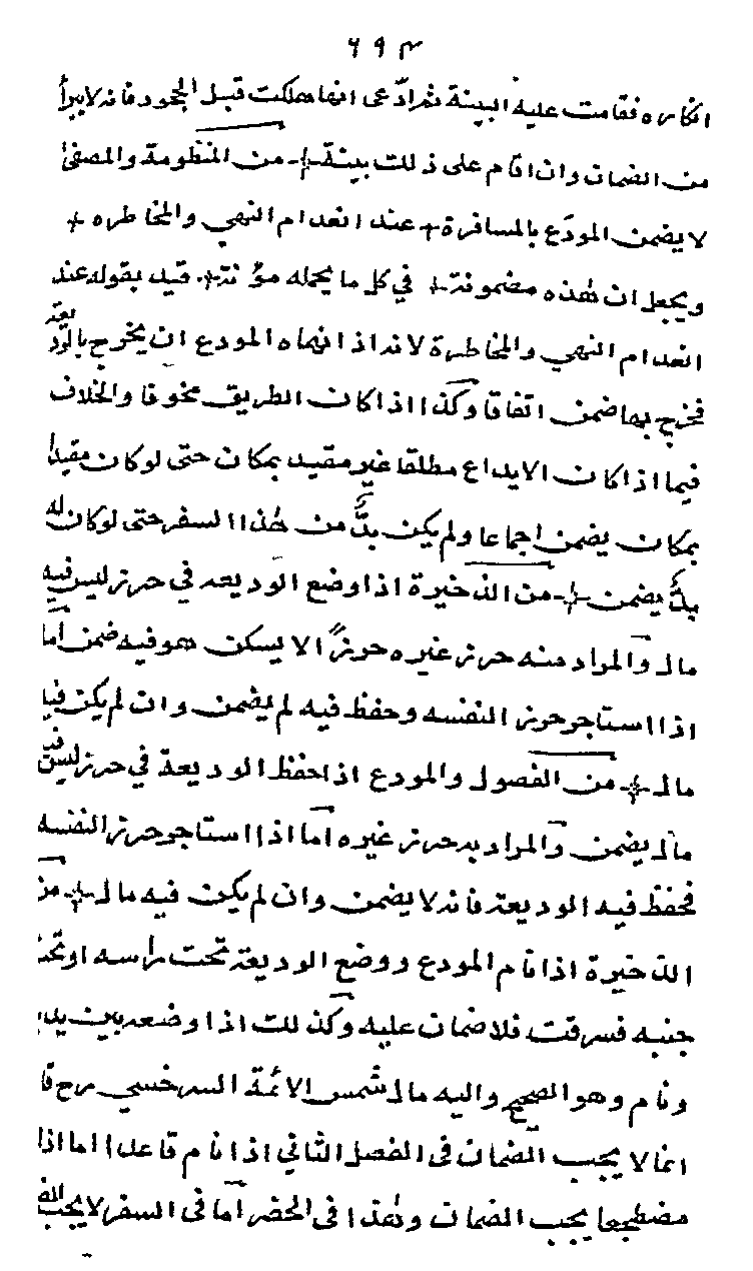 ٦٩٣
انكاره فقامت عليه البينة ثم ادّعى انها هلكت قبل الجحود فانه لا يبرأ
من الضمان وان اقام على ذلك بينة من المنظومة والمصفىٰ
لا يضمن المودَع بالمسافرة عند انعدام النهي والمخاطره
ويجعلان هٰذه مضمونة في كل ما يحمله مؤنة قيد بقوله عند
انعدام النهي والمخاطرة لانه اذا نهاه المودع ان يخرج بالوديعة
فخرج بها ضمن اتفاقا وكذا اذا كان الطريق مخوفا والخلاف
فيما اذا كان الايداع مطلقا غير مقيد بمكان حتى لو كان مقيدا
بمكان يضمن اجماعا ولم يكن بدٌّ من هٰذا السفر حتى لو كان له
بدٌّ يضمن من الذخيرة اذا وضع الوديعه في حرز ليس فيه
مالہ والمراد منه حرز غيره حرزًا لا يسكن هو فيه ضمن اما
اذا استاجر حرز النفسه وحفظ فيه لم يضمن وان لم يكن فيها
مالہ من الفصول والمودع اذا حفظ الوديعة في حرز ليس فيه
مالہ يضمن والمراد به حرز غيره اما اذا استاجر حرز النفسه
فحفظ فيه الوديعة فانه لا يضمن وان لم يكن فيه مالہ من
الذخيرة اذا نام المودع ووضع الوديعة تحت رأسه او تحت
جنبه فسرقت فلا ضمان عليه وكذلك اذا وضعه بين يديه
ونام وهو الصحيح واليه مال شمس الائمة السرخسي رح قا
انما لا يجب الضمان فى الفصل الثاني اذا نام قاعدا اما اذا
مضطجعا يجب الضمان وهٰذا فى الحضر اما فى السفر لا يجب الضمان